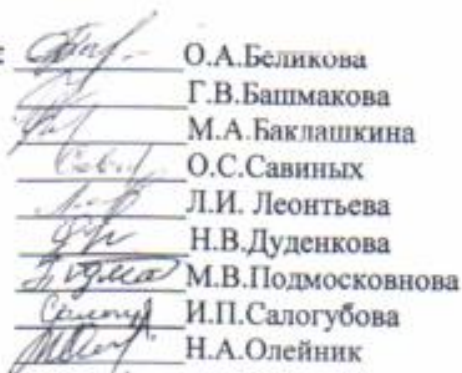 : О.А.Беликова
Г.В.Башмакова
М.А.Баклашкина
О.С.Савиных
Л.И. Леонтьева
Н.В.Дуденкова
М.В.Подмосковнова
И.П.Салогубова
Н.А.Олейник